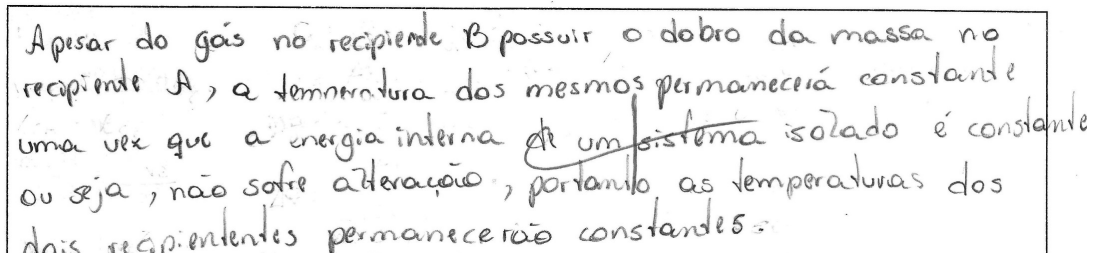 Apesar do gás no recipiende B possuir o dobro da massa no
recipiente A, a temneratura dos mesmos permanecerá constante
uma vez que a energia interna de um sistema isolado é constante
ou seja, não sofre alteração, portanto as temperaturas dos
dois recipiententes permanecerão constantes.